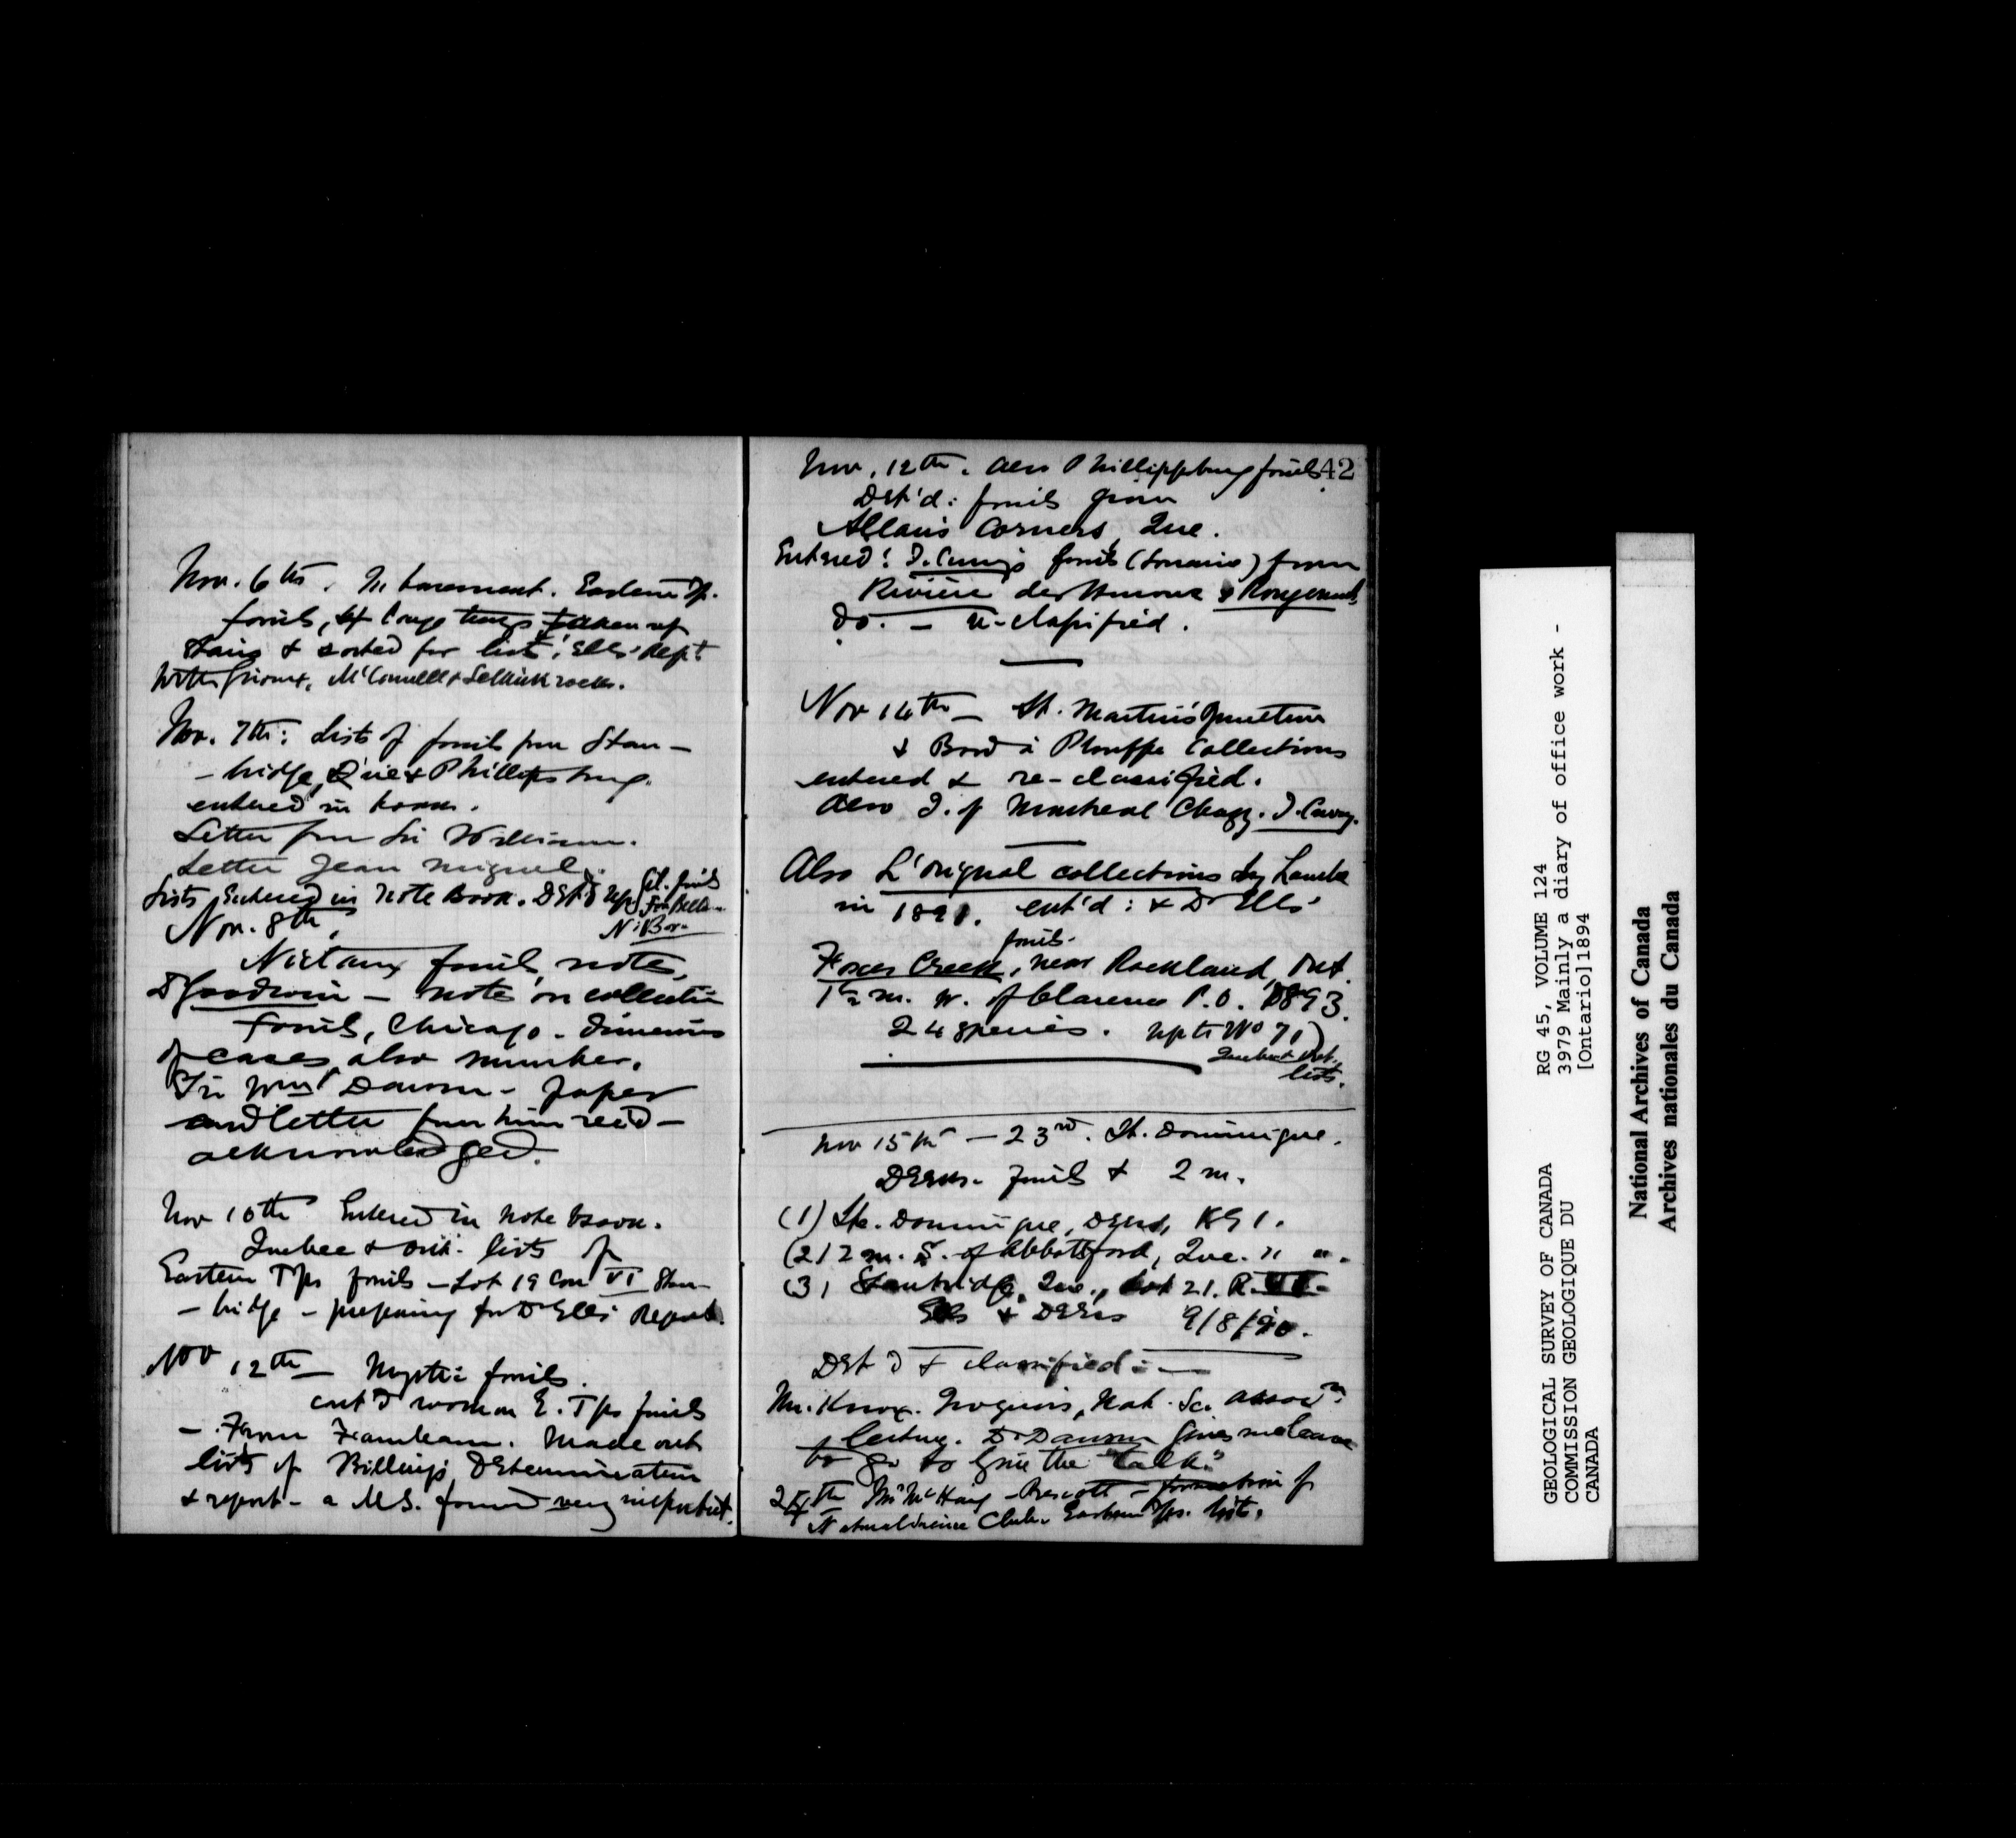 Nov. 6th. In basement. Eastern Tp.
fossils, of Congo taken up
stairs & sorted for lists, Ells' Rept.
McConnell & Selkirk rocks.
Nov. 7th: Lists of fossils from Stan-
-bridge, Que & Phillipsburg.
entered in book.
Letter from Sir William.
Letter Jean Miguel.
Lists Entered in Note Book. Det'd
Sil. fossils
N. B.
Nov. 8th,
Nictaux fossils, notes,
D Goodwin – notes on collection
fossils, Chicago. dimensions
of cases also number.
Sir Wm Dawson – paper
and letter from him rec'd –
acknowledged.
Nov 10th Entered in Note book.
Quebec & Ont. lists of
Eastern Tps fossils – Lot 19 Con VI Stan-
-bridge – preparing for Dr Ells' Report.
Nov 12th – Mystic fossils.
cont'd work on E. Tps fossils
– From Farnham. Made out
lists of Billings' Determination
& report – a MS. found very important.
Nov. 12th. Also Phillippsburg fossils
42
Det'd: fossils from
Allans Corners, Que.
Entered: fossils from
Rivière des Hurons & Rougemont,
do. – re-classified.
Nov 14th – St. Martin's Junction
& Bord à Plouffe Collections
entered & re-classified.
Also I. of Montreal Chazy.
Also L'orignal collections by Lambe
in 1891. ent'd: & Dr Ells'
fossils.
Foxes Creek, near Rockland, Ont.
1½ m. W. of Clarence P.O. 1893.
24 species. up to No 71)
Quebec & Ont.
lists.
Nov 15th – 23rd. St. Dominique.
Deeks. fossils & 2 m.
(1) St. Dominique, Deeks, 1891.
(2) 2 m. S. of Abbottsford, Que. " ".
(3) Stanbridge, Que., Lot 21. R.
Ells & Deeks 9/8/90.
Det'd & classified: –
Mr. Knox. Iroquois, Nat. Sc. Assocn.
lecture. Dr Dawson gives me leave
to go to give the "talk."
24th Prescott – formation of
Natural Science Club. Eastern Tps. lists.
GEOLOGICAL SURVEY OF CANADA
COMMISSION GEOLOGIQUE DU
CANADA
RG 45, VOLUME 124
3979 Mainly a diary of office work -
[Ontario]1894
National Archives of Canada
Archives nationales du Canada